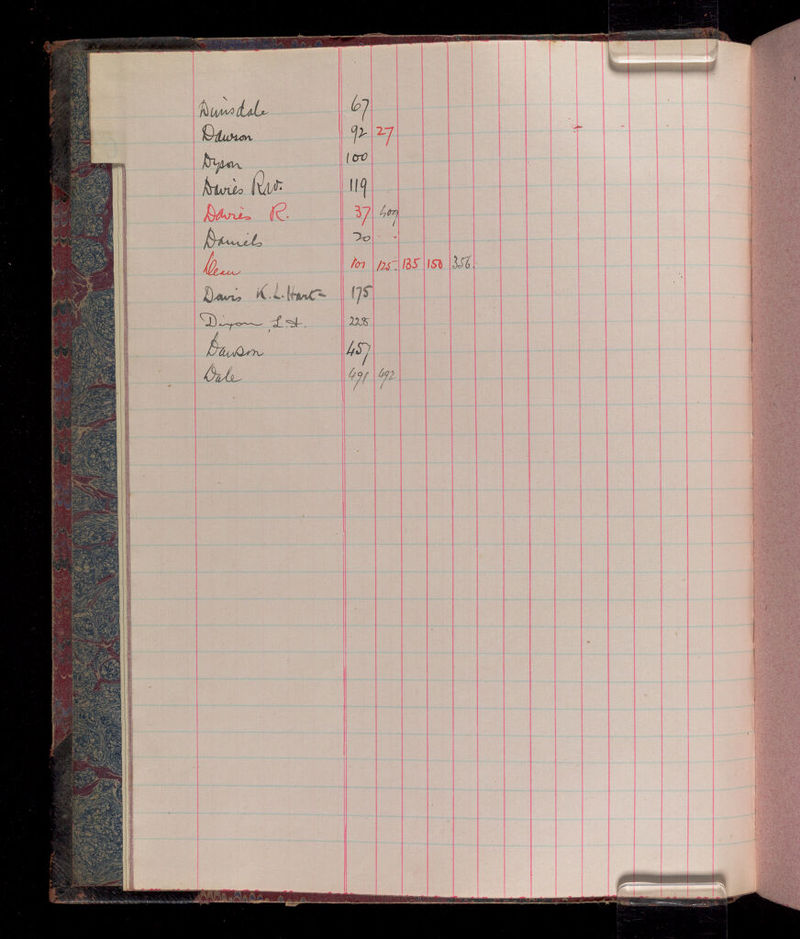 Dinsdale 67
Dawson 92 27
Dyson 100
Davies R.W. 119
Davies R. 37 409
Daniels 20
Dean 101 125. 135 150 356.
Davis K.L. Hart= 175
Dixon, L.H. 228
Dawson 457
Dale 491 492